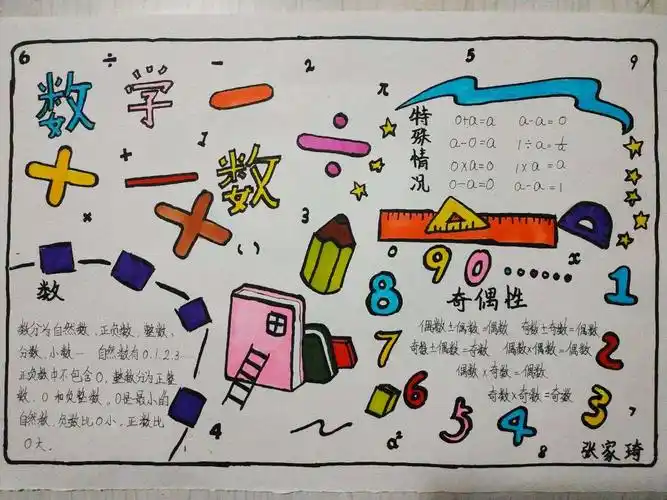 6 ÷ - 2 5 9
数学
π
+ 1
数
特殊情况
0+a=a a-a=0
a-0=a 1÷a=
0×a=0 1×a=a
0-a=0 a-a=1
×
3
( )
0 x
数
数分为自然数、正负数、整数、
分数、小数… 自然数有0.1.2.3…
正负数中不包含0，整数分为正整
数、0和负整数。0是最小的
自然数、负数比0小，正数比
0大。
9 0 ······
奇偶性
偶数±偶数=偶数 奇数±奇数=偶数
奇数±偶数=奇数 偶数×偶数=偶数
偶数×奇数=偶数
奇数×奇数=奇数
8 1
7 2
6 5 4 3
4 a² 8 7
张家琦